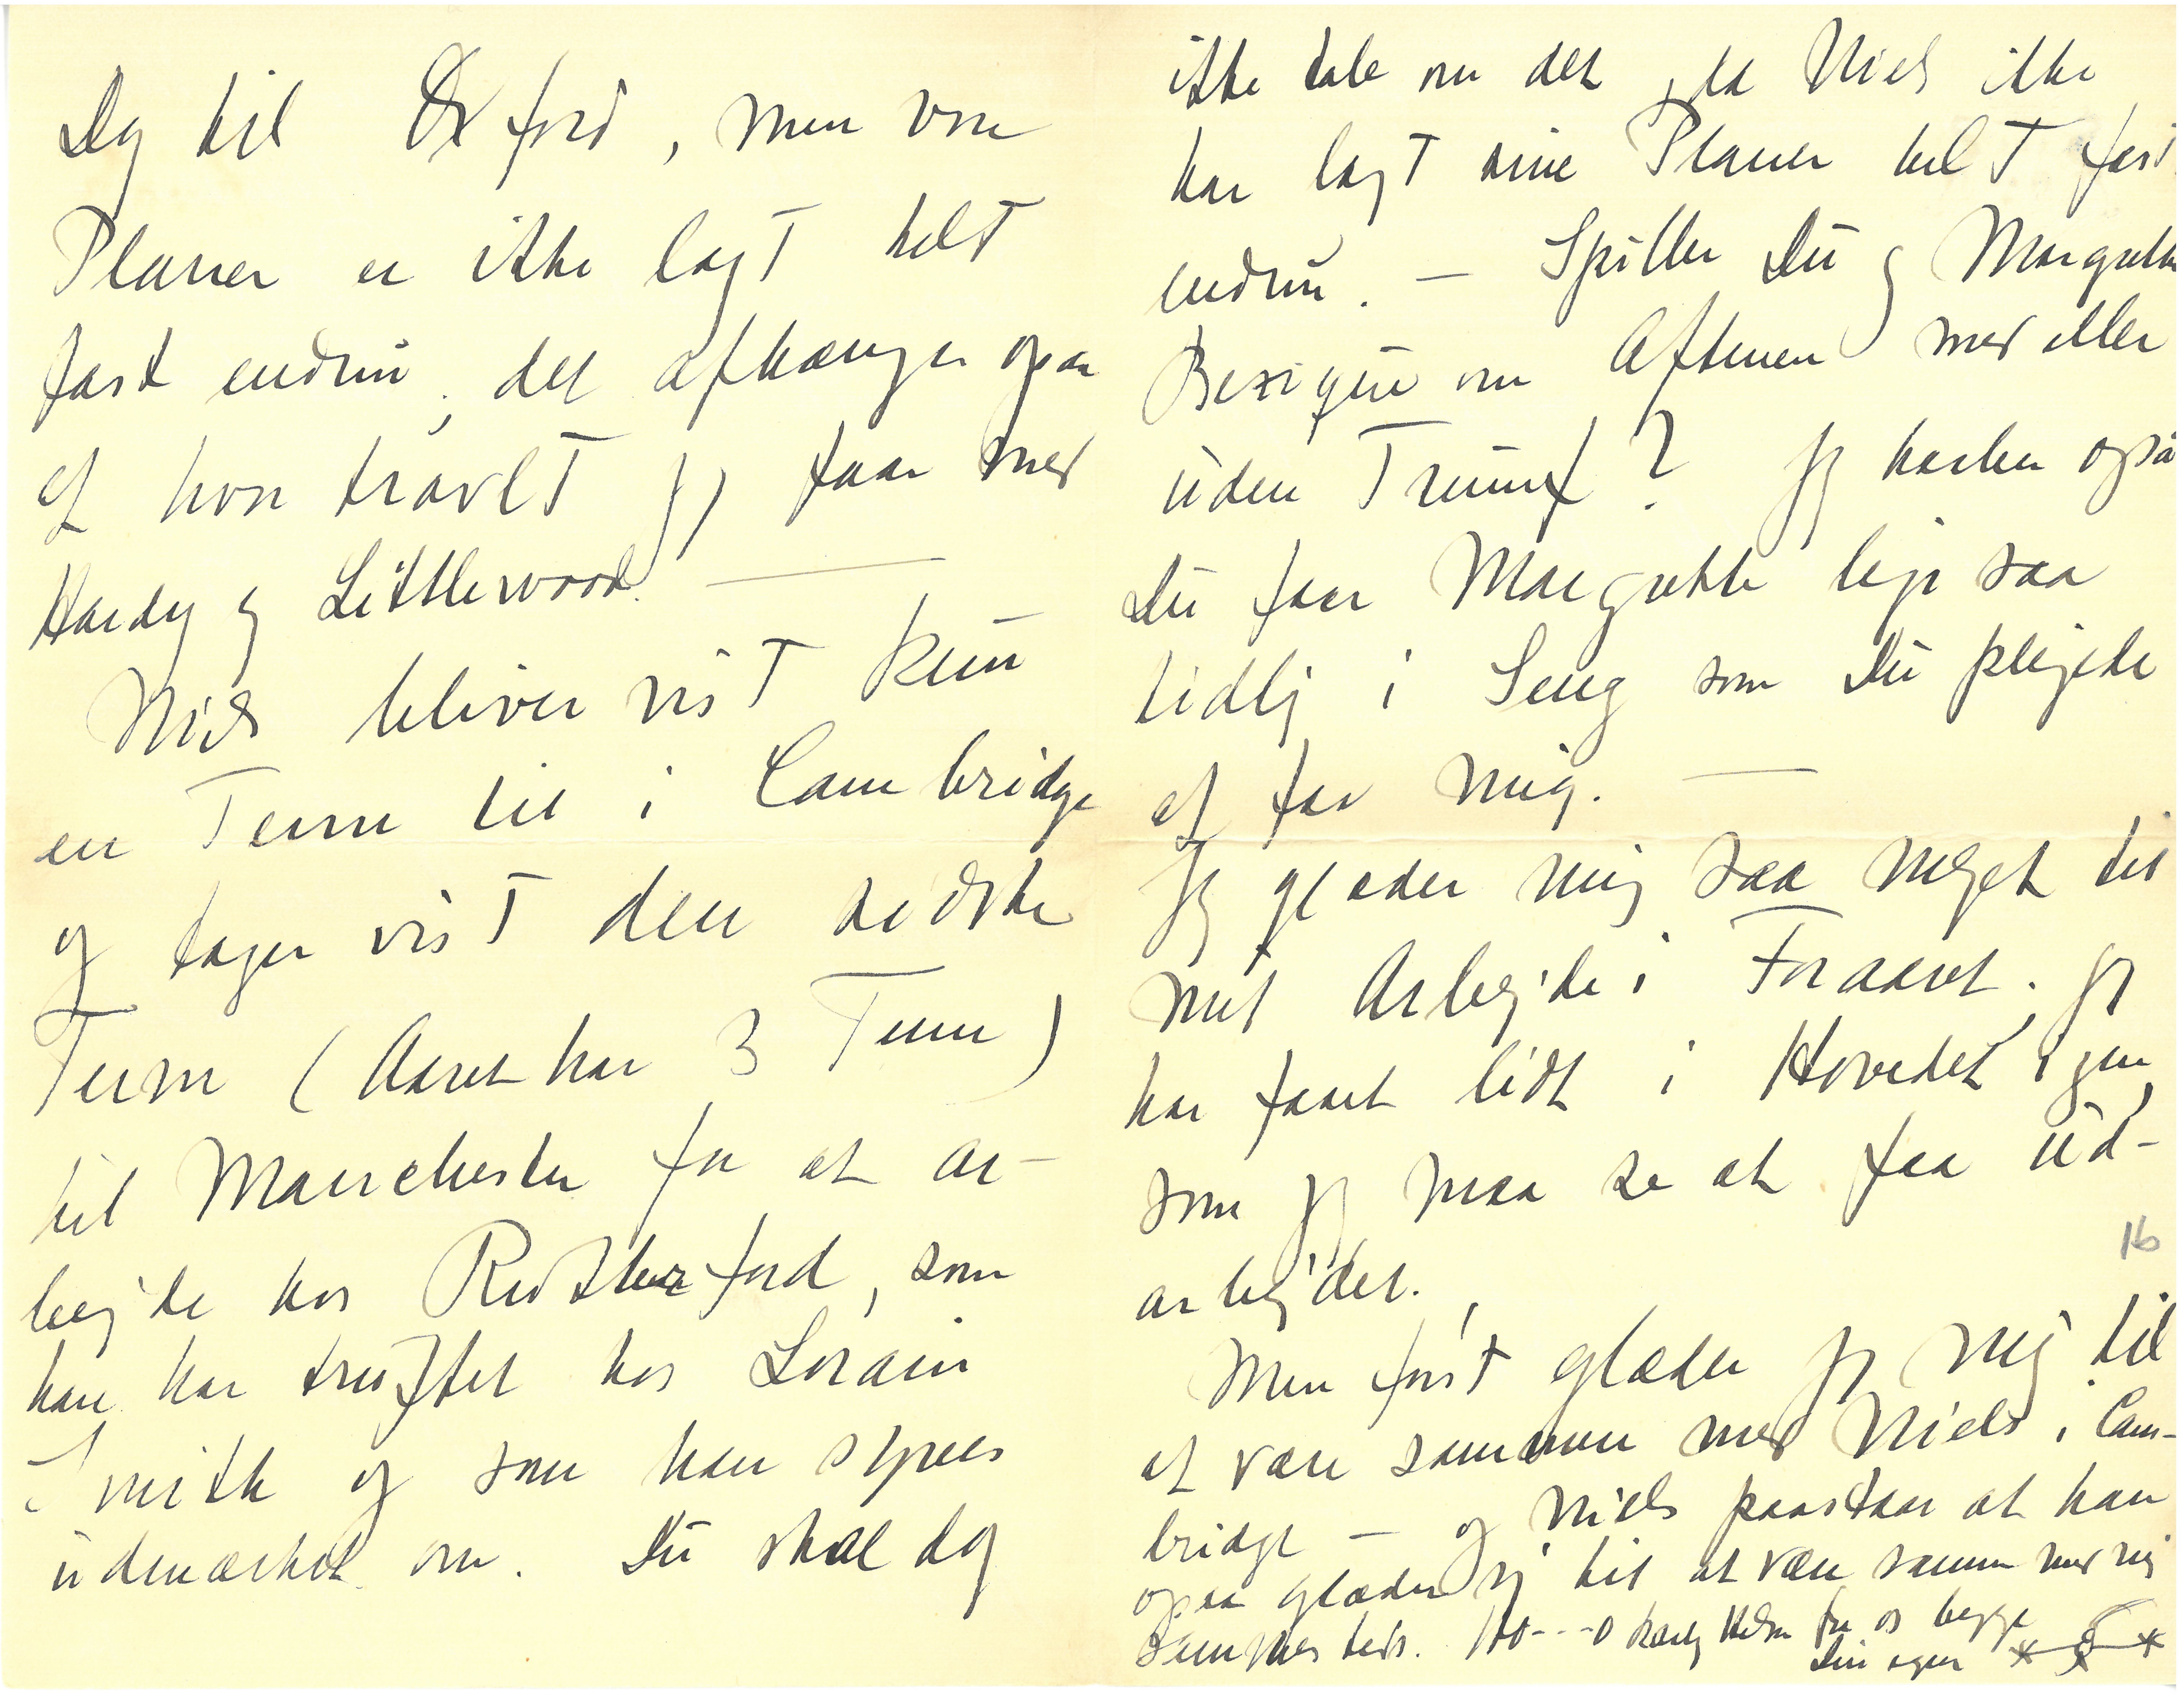 Dag til Oxford, men vore
Planer er ikke lagt helt
fast endnu, det afhænger ogsaa
af hvor travlt jeg faar med
Hardy og Littlewood. —
Niels bliver vist kun
en Term til i Cambridge
og tager vist den sidste
Term (Aaret har 3 Term)
til Manchester for at ar-
bejde hos Rutherford, som
han har truffet hos Lorain
Smith og som han synes
udmærket om. Du skal dog
ikke tale om det, da Niels ikke
har lagt sine Planer helt fast
endnu. — Spiller Du og Margrethe
Bezique om Aftenen med eller
uden Trumf? Jeg haaber også
Du faar Margrethe lige saa
tidlig i Seng som Du plejede
at faa mig. —
Jeg glæder mig saa meget til
mit Arbejde i Foraaret. Jeg
har faaet lidt i Hovedet igen,
som jeg maa se at faa ud-
16
arbejdet.
Men først glæder jeg mig til
at være sammen med Niels i Cam-
bridge — og Niels paastaar at han
ogsaa glæder sig til at være sammen med mig
sammesteds. 100---0 kærlig Hilsen fra os begge
Din egen